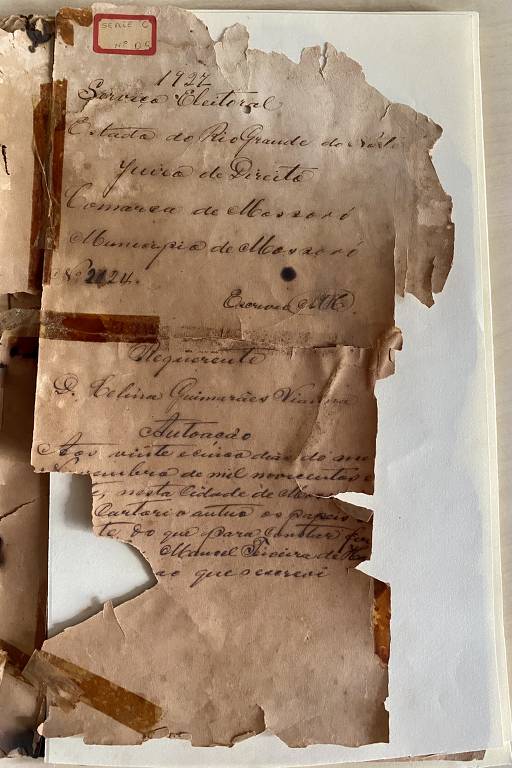 SERIE C
Nº 05
1927
Serviço Eleitoral
Estado do Rio Grande do Norte
Juizo de Direito
Comarca de Mossoró
Municipio de Mossoró
Nº 2124.
Escrivão
Requerente
D. Celina Guimarães Vianna
Autoação
Aos vinte e cinco dias do me
Novembro de mil novecentos e
e, nesta Cidade de Mo
Cartorio autuo os papeis
te, do que para constar fiz
Manoel Teixeira de
ão que o escrevi